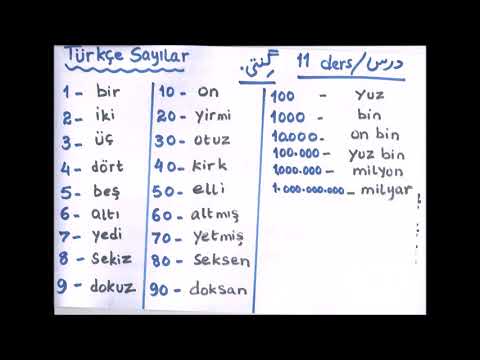 Türkçe Sayılar
گنتی.
11 ders/درس
1 - bir
2 - iki
3 - üç
4 - dört
5 - beş
6 - altı
7 - yedi
8 - sekiz
9 - dokuz
10 - on
20 - yirmi
30 - otuz
40 - kirk
50 - elli
60 - altmış
70 - yetmiş
80 - seksen
90 - doksan
100 - yuz
1000 - bin
10.000 - on bin
100.000 - yuz bin
1.000.000 - milyon
1.000.000.000 - milyar